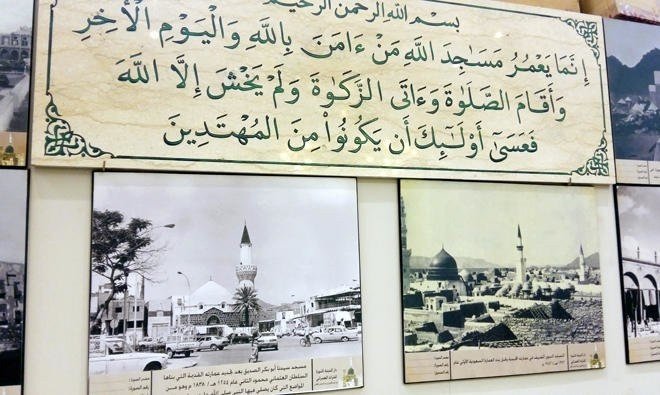 بسم الله الرحمن الرحيم
إِنَّمَا يَعْمُرُ مَسَاجِدَ اللَّهِ مَنْ ءَامَنَ بِاللَّهِ وَالْيَوْمِ الْآخِرِ
وَأَقَامَ الصَّلَوٰةَ وَءَاتَى الزَّكَوٰةَ وَلَمْ يَخْشَ إِلَّا اللَّهَ
فَعَسَىٰ أُوْلَٰٓئِكَ أَن يَكُونُوا۟ مِنَ الْمُهْتَدِينَ
مسجد سيدنا أبو بكر الصديق بعد تجديد عمارته القديمة التي بناها
السلطان العثماني محمود الثاني عام ١٢٥٤ هـ / ١٨٣٨ م وهو من
المواضع التي كان يصلي فيها النبي صلى الله عليه
المسجد النبوي الشريف في عمارته القديمة وقبل بدء العمارة السعودية الأولى عام